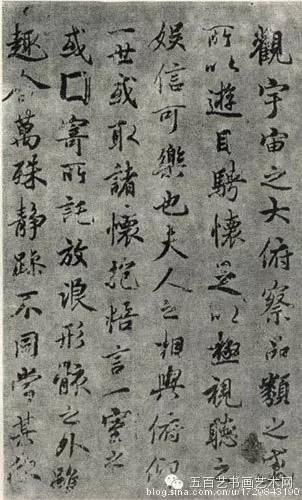 觀宇宙之大俯察品類之盛
所以遊目騁懷足以極視聽之
娛信可樂也夫人之相與俯仰
一世或取諸懷抱悟言一室之
或囗寄所託放浪形骸之外雖
趣舍萬殊静躁不同當其欣
五百艺书画艺术网